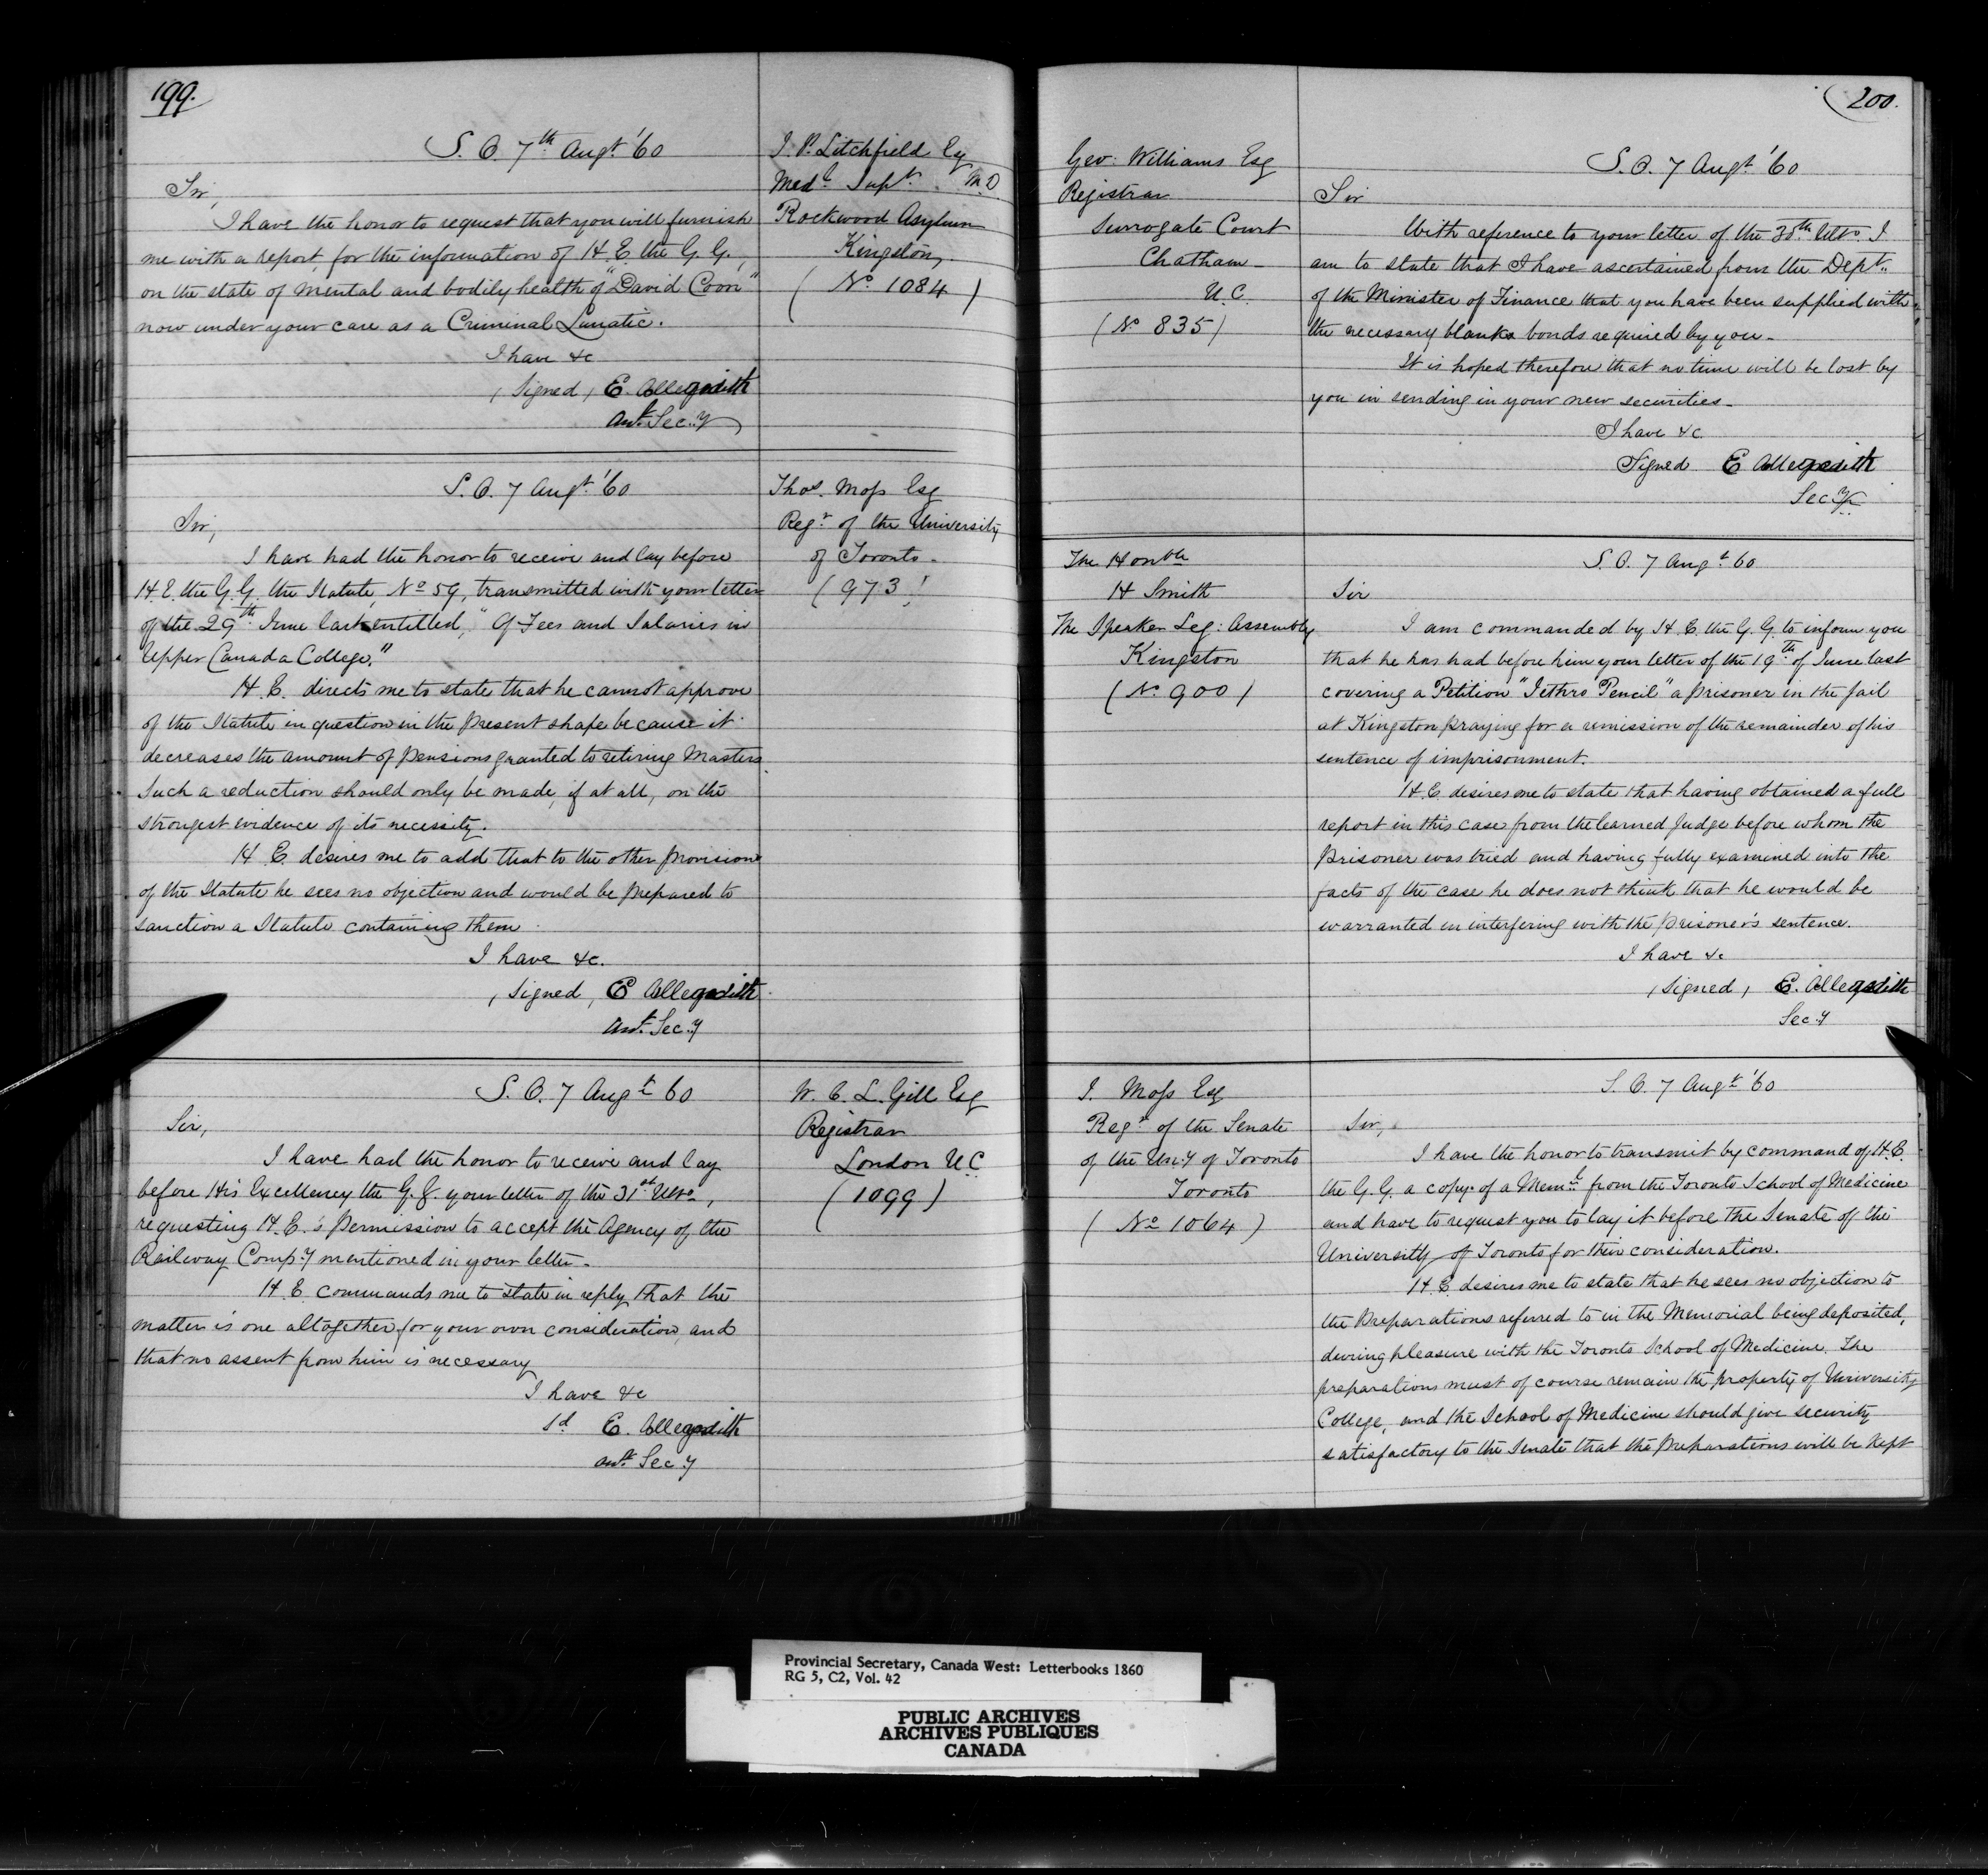 199.
S. O. 7th Augt. '60
Sir,
I have the honor to request that you will furnish
me with a report, for the information of H. E. the G. G.,
on the state of mental and bodily health of "David Coon"
now under your care as a Criminal Lunatic.
I have &c
(Signed) E. A. Meredith
Asst. Sec.y
J. P. Litchfield Esq
Medl. Supt. M.D
Rockwood Asylum
Kingston,
(No. 1084)
S. O. 7 Augt. '60
Sir,
I have had the honor to receive and lay before
H. E. the G. G. the Statute, No 59, transmitted with your letter
of the 29th June last entitled, "Of Fees and Salaries in
Upper Canada College."
H. E. directs me to state that he cannot approve
of the Statute in question in the present shape because it
decreases the amount of pensions granted to retiring Masters.
Such a reduction should only be made, if at all, on the
strongest evidence of its necessity.
H. E. desires me to add that to the other provisions
of the Statute he sees no objection and would be prepared to
sanction a Statute containing them.
I have &c.
(Signed) E. A. Meredith
Asst. Sec.y
Thos. Moss Esq
Regr. of the University
of Toronto.
(973)
S. O. 7 Augt. 60
Sir,
I have had the honor to receive and lay
before His Excellency the G. G. your letter of the 31st Ulto.,
requesting H. E.'s permission to accept the Agency of the
Railway Comp.y mentioned in your letter.
H. E. commands me to state in reply that the
matter is one altogether for your own consideration, and
that no assent from him is necessary
I have &c
Sd E. A. Meredith
Asst. Sec.y
W. C. L. Gill Esq
Registrar
London U C
(1099)
200.
Geo: Williams Esq
Registrar
Surrogate Court
Chatham
U. C.
(No 835)
S. O. 7 Augt. '60
Sir
With reference to your letter of the 30th Ulto. I
am to state that I have ascertained from the Dept.
of the Minister of Finance that you have been supplied with
the necessary blank bonds required by you.
It is hoped therefore that no time will be lost by
you in sending in your new securities.
I have &c.
Signed E A Meredith
Sec.y
The Honble
H Smith
The Speaker Leg: Assembly
Kingston
(No. 900)
S. O. 7 Augt. 60
Sir
I am commanded by H. E. the G. G. to inform you
that he has had before him your letter of the 19th of June last
covering a Petition "Jethro Pencil" a prisoner in the jail
at Kingston praying for a remission of the remainder of his
sentence of imprisonment.
H. E. desires me to state that having obtained a full
report in this case from the learned Judge before whom the
prisoner was tried and having fully examined into the
facts of the case he does not think that he would be
warranted in interfering with the prisoner's sentence.
I have &c
(Signed) E. A. Meredith
Sec.y
J. Moss Esq
Regr. of the Senate
of the Un.y of Toronto
Toronto
(No 1064)
S. O. 7 Augt. '60
Sir,
I have the honor to transmit by command of H. E.
the G. G. a copy of a Meml. from the Toronto School of Medicine
and have to request you to lay it before the Senate of the
University of Toronto for their consideration.
H. E. desires me to state that he sees no objection to
the Preparations referred to in the Memorial being deposited,
during pleasure with the Toronto School of Medicine. The
preparations must of course remain the property of University
College, and the School of Medicine should give security
satisfactory to the Senate that the preparations will be kept
Provincial Secretary, Canada West: Letterbooks 1860
RG 5, C2, Vol. 42
PUBLIC ARCHIVES
ARCHIVES PUBLIQUES
CANADA